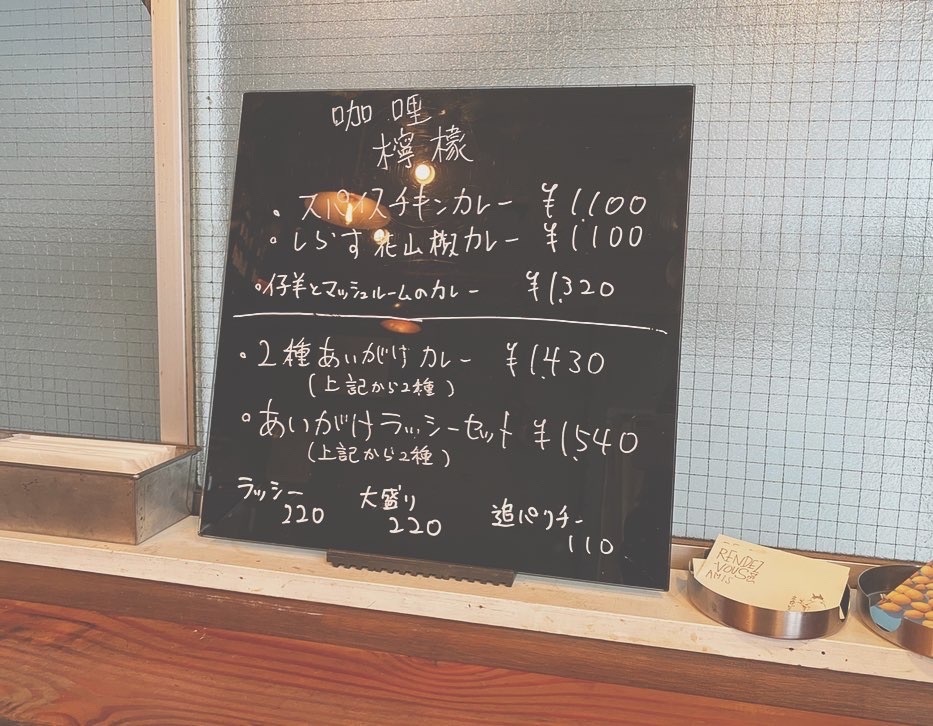 咖哩
檸檬
・スパイスチキンカレー ¥1,100
・しらす花山椒カレー ¥1,100
・仔羊とマッシュルームのカレー ¥1,320
・2種あいがけカレー ¥1,430
(上記から2種)
・あいがけラッシーセット ¥1,540
(上記から2種)
ラッシー 大盛り 追パクチー
220 220 110
RENDEZ
VOUS
AMIS